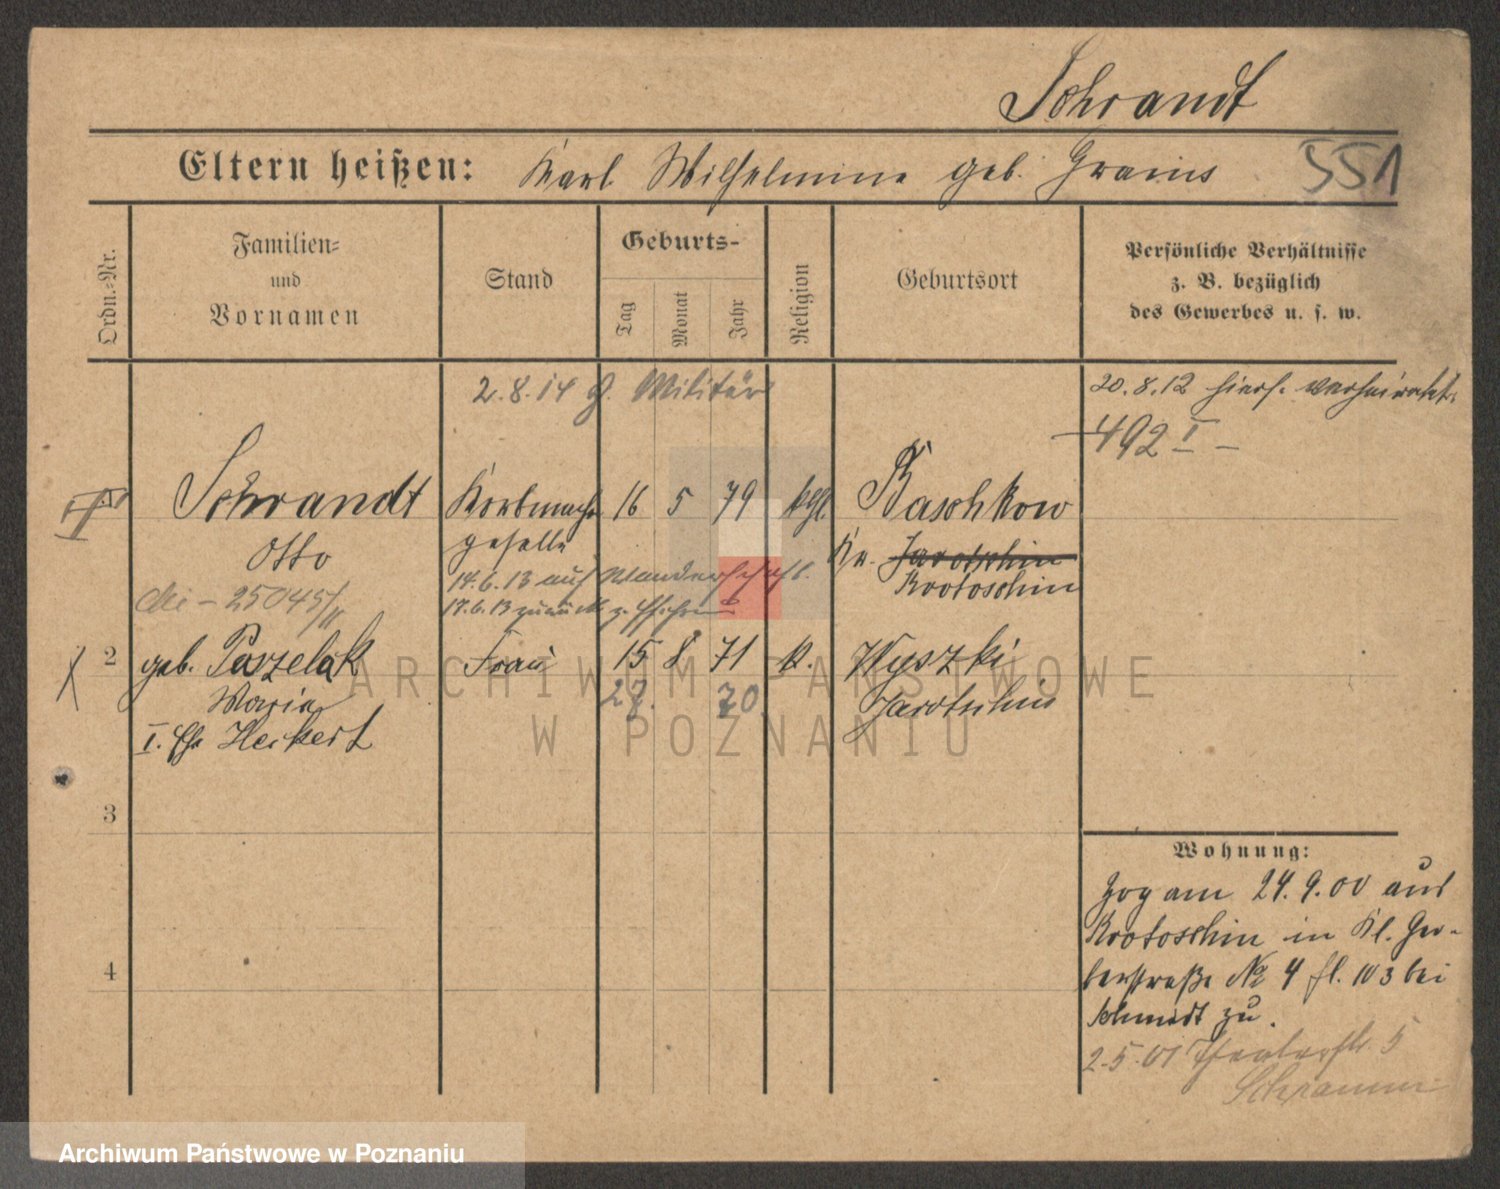 Schrandt
Eltern heißen: Karl Wilhelmine geb. Grams 551
Ordn.-Nr.
Familien-
und
Vornamen
Stand
Geburts-
Tag
Monat
Jahr
Religion
Geburtsort
Persönliche Verhältnisse
z. B. bezüglich
des Gewerbes u. s. w.
2.8.14 z. Militär
20.8.12 hiers. verheiratet.
492 I –
Schrandt Korbmacher 16 5 79 kath. Baschkow
Otto geselle Kr. Jarotschin
Krotoschin
25045/11
14.6.13 auf Wanderschaft.
17.6.13 zurück z. Ehefrau
2 geb. Paszelak Frau 15 8 71 k. Wyszki
Maria 27. 70 Jarotschin
I. Ehe Heckert
3
4
Wohnung:
Zog am 24.9.00 aus
Krotoschin in Kl. Ger-
berstraße No 4 fl. 103 bei
Schmidt zu.
2.5.01 Theaterstr. 5
Schramm
ARCHIWUM PAŃSTWOWE
W POZNANIU
Archiwum Państwowe w Poznaniu